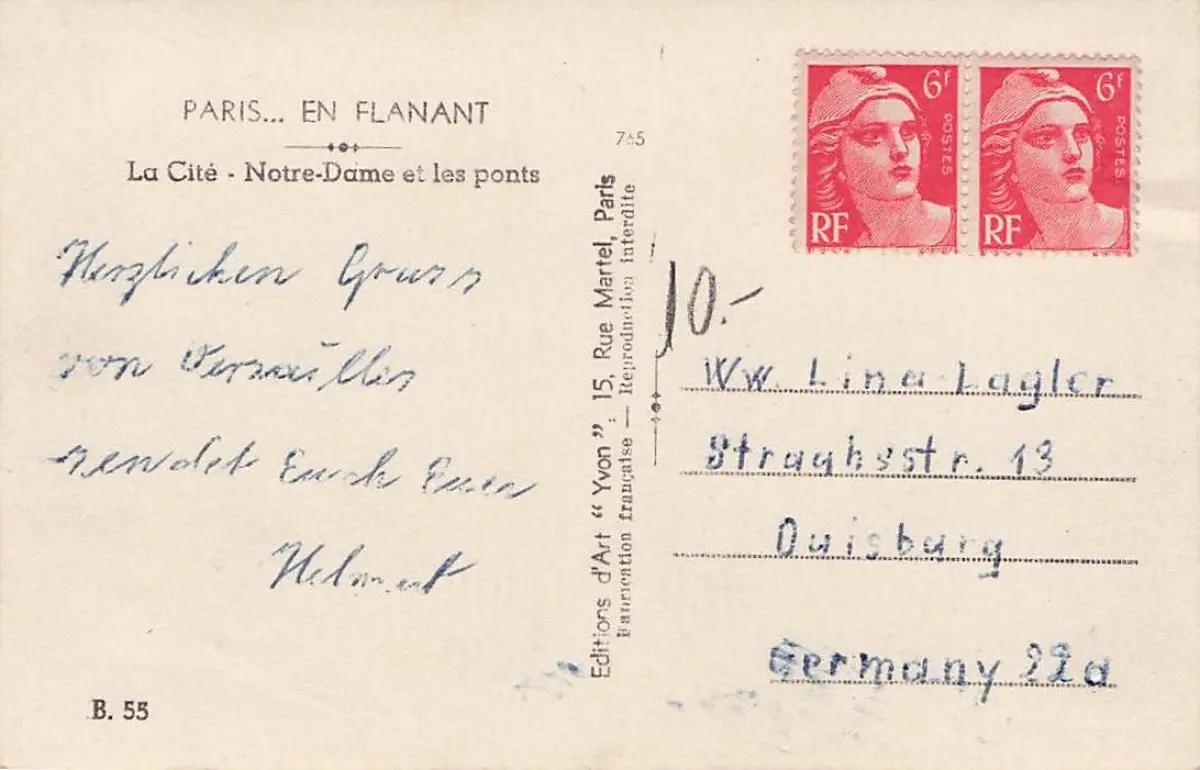 PARIS... EN FLANANT
La Cité - Notre-Dame et les ponts
Herzlichen Gruss
von Versailles
sendet Euch Euer
Helmut
B. 55
765
Editions d'Art "Yvon": 15, Rue Martel, Paris
Fabrication française — Reproduction interdite
6F
POSTES
RF
6F
POSTES
RF
10.-
Ww. Lina Lagler
13
Duisburg
Germany 22a